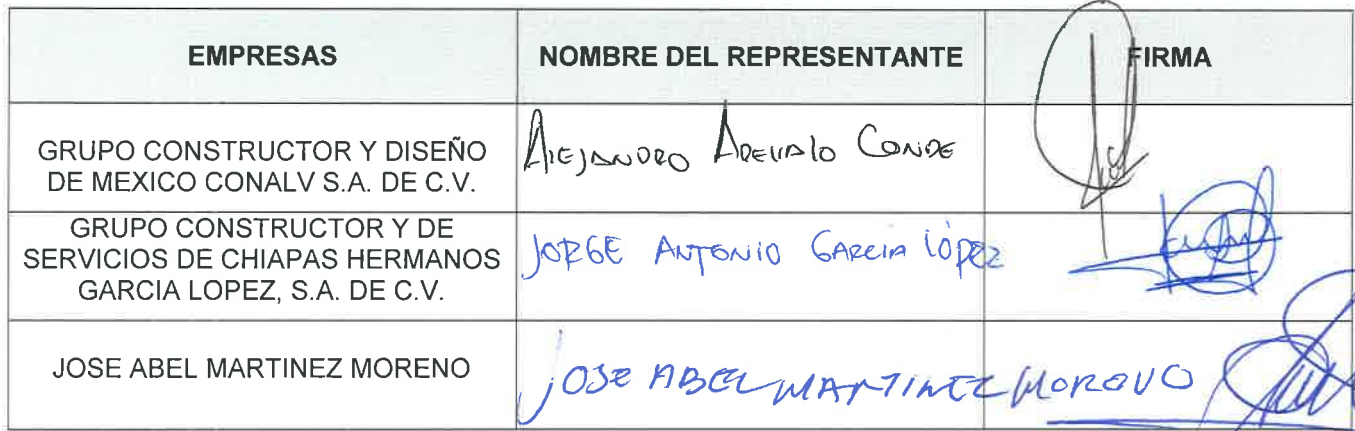 EMPRESAS NOMBRE DEL REPRESENTANTE FIRMA
GRUPO CONSTRUCTOR Y DISEÑO
DE MEXICO CONALV S.A. DE C.V.
ALEJANDRO AREVALO CONDE
GRUPO CONSTRUCTOR Y DE
SERVICIOS DE CHIAPAS HERMANOS
GARCIA LOPEZ, S.A. DE C.V.
JORGE ANTONIO GARCIA LÓPEZ
JOSE ABEL MARTINEZ MORENO
JOSE ABEL MARTINEZ MORENO